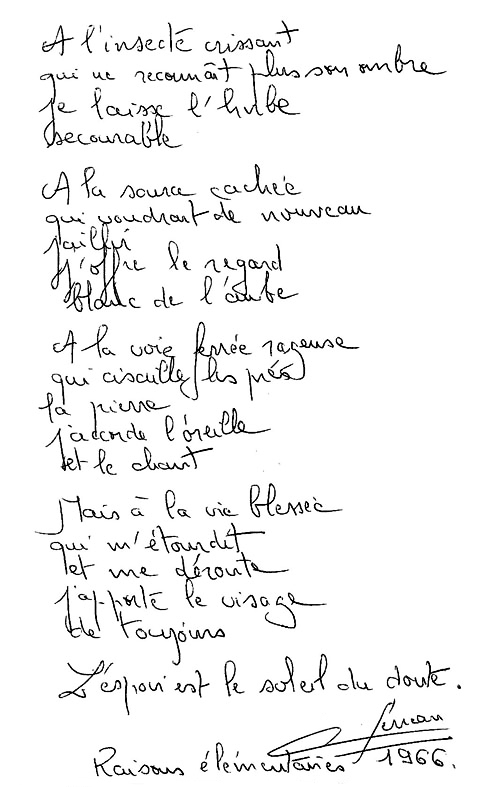 A l'insecte crissant
qui ne reconnaît plus son ombre
je laisse l'herbe
secourable
A la source cachée
qui voudrait de nouveau
jaillir
j'offre le regard
blanc de l'aube
A la voie ferrée rageuse
qui cisaille les prés
la pierre
j'accorde l'oreille
et le chant
Mais à la vie blessée
qui m'étourdit
et me déroute
j'apporte le visage
de toujours
L'espoir est le soleil du doute.
Raisons élémentaires 1966.